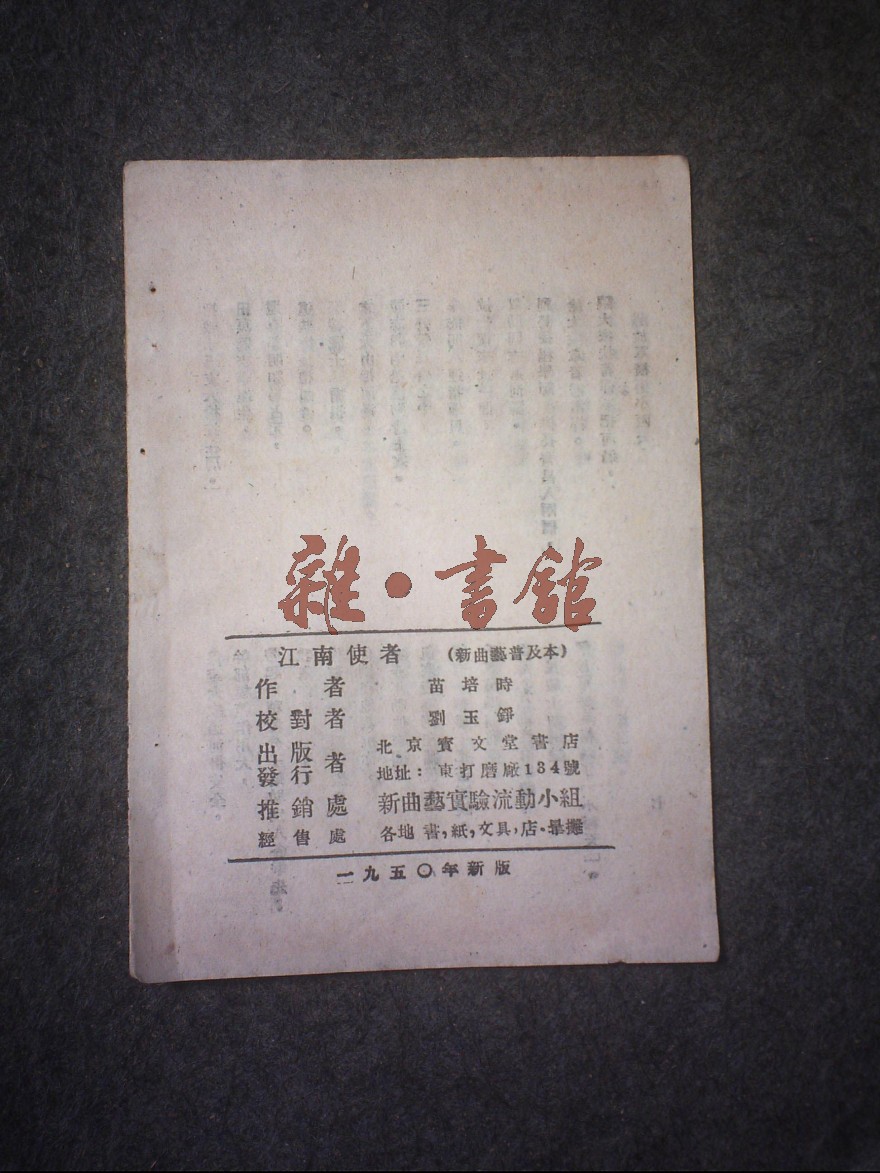 雜·書館
江南使者 (新曲藝普及本)
作者 苗培時
校對者 劉玉錚
出版發行者 北京寶文堂書店
地址：東打磨廠134號
推銷處 新曲藝實驗流動小組
經售處 各地書，紙，文具，店·攤
一九五〇年新版